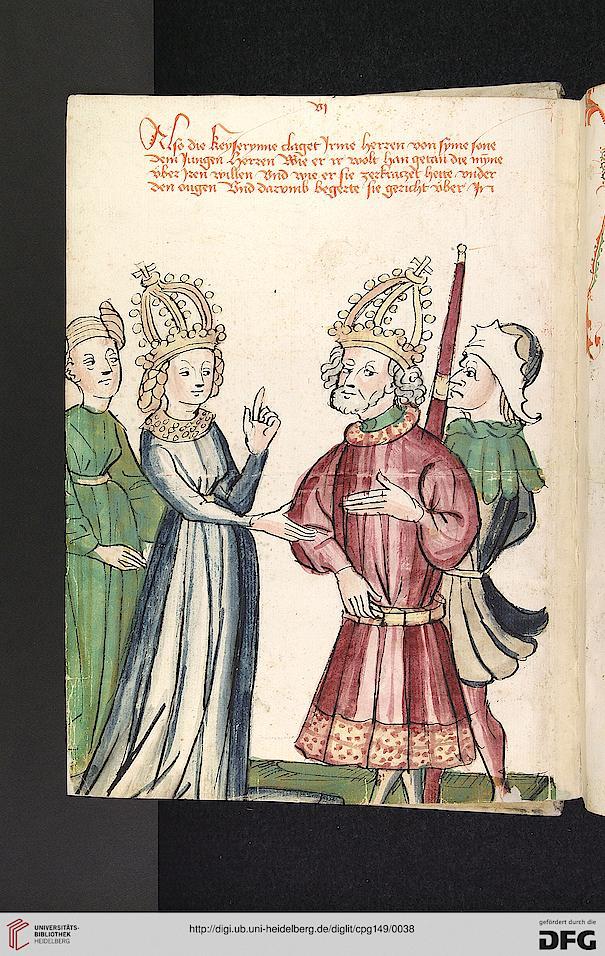 VI
Also die keyserynne claget Irme herren von syme sone
dem Jungen herren Wie er ir wolt han getan die myne
vber Iren willen Vnd wie er sie zerkraczet hette vnder
den augen Vnd darvmb begerte sie gericht vber In
UNIVERSITÄTS-
BIBLIOTHEK
HEIDELBERG
http://digi.ub.uni-heidelberg.de/diglit/cpg149/0038
gefördert durch die
DFG